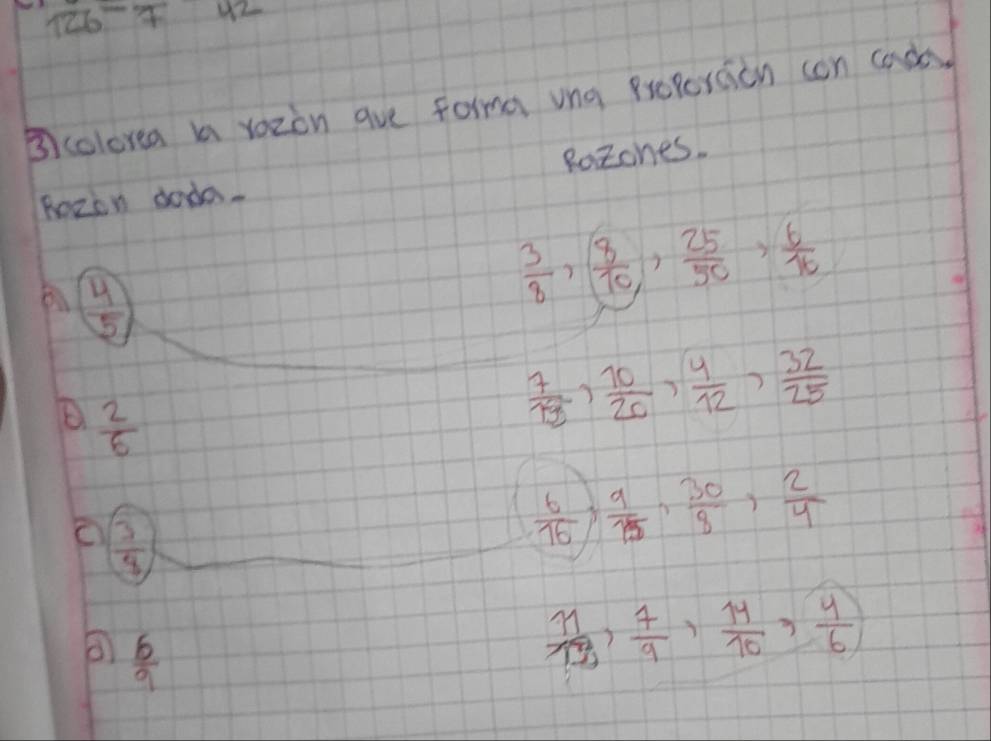 126 7 42
3) colorea la razón que forma una proporción con cada
Razón dada- Razones.
A) 4/5 3/8, 8/10, 25/50, 6/16
B) 2/6 7/13, 10/20, 4/12, 32/25
C) 3/8 6/16, 9/15, 30/8, 2/4
D) 6/9 11/13, 7/9, 14/10, 4/6